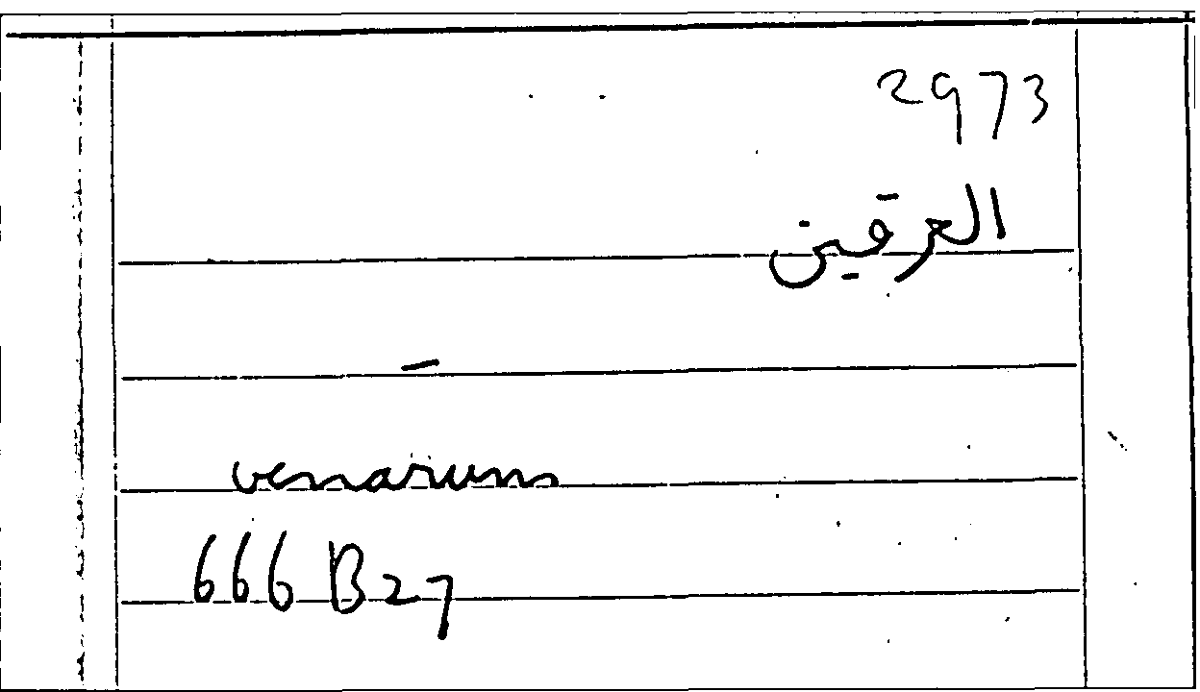 2973
العرقين
–
venarum
666 B27